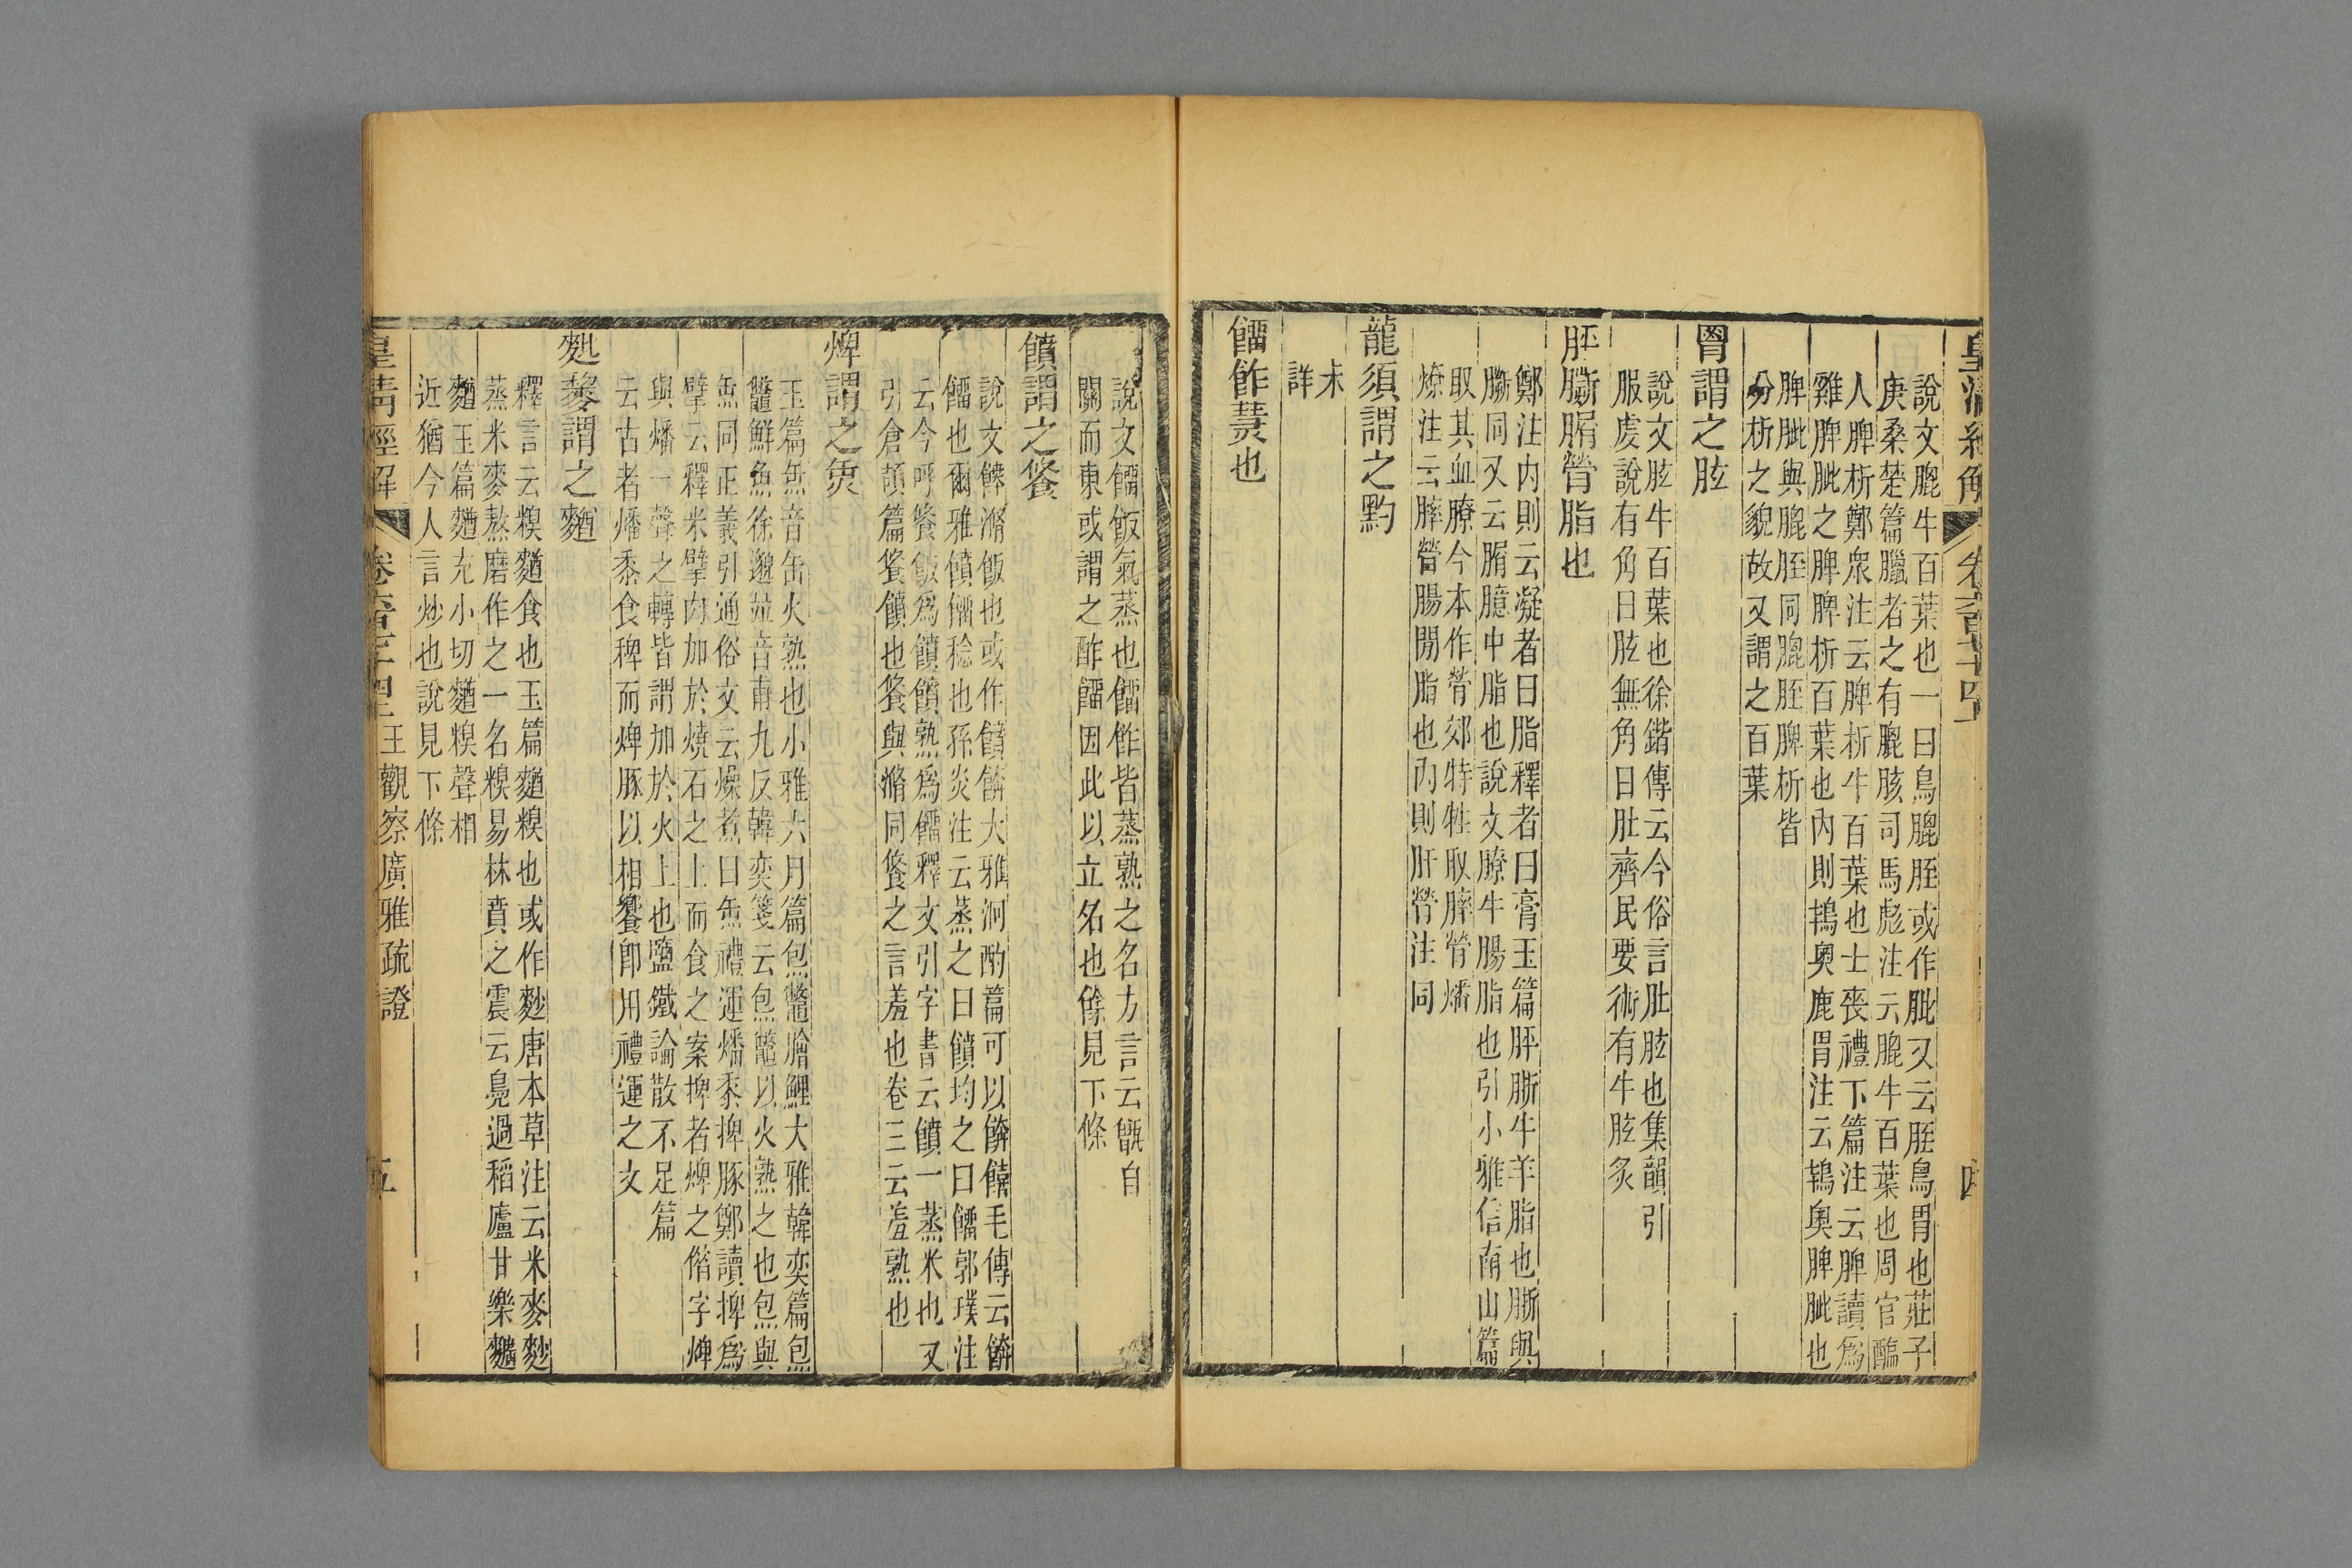 皇清經解 卷六百七十四 四
說文膍牛百葉也一曰鳥膍胵或作肶又云胵鳥胃也莊子
庚桑楚篇臘者之有膍胲司馬彪注云膍牛百葉也周官醢
人脾析鄭衆注云脾析牛百葉也士喪禮下篇注云脾讀爲
雞脾肶之脾脾析百葉也內則鴇奧鹿胃注云鴇奧脾肶也
脾肶與膍胵同膍胵脾析皆
分析之貌故又謂之百葉
胃謂之胘
說文胘牛百葉也徐鍇傳云今俗言肚胘也集韻引
服虔說有角曰胘無角曰肚齊民要術有牛胘炙
胓䏿膶膋脂也
鄭注內則云凝者曰脂釋者曰膏玉篇胓䏿牛羊脂也䏿與
䏿同又云膶臆中脂也說文膫牛腸脂也引小雅信南山篇
取其血膫今本作膋郊特牲取膟膋燔
燎注云膟膋腸閒脂也內則肝膋注同
龍須謂之䵢
未
詳
餾飵䕼也
說文餾飯氣蒸也餾飵皆蒸熟之名方言云甑自
關而東或謂之酢餾因此以立名也餘見下條
饙謂之餐
說文餴滫飯也或作饙餴大雅泂酌篇可以餴饎毛傳云餴
餾也爾雅饙餾稔也孫炎注云蒸之曰饙均之曰餾郭璞注
云今呼餐飯爲饙饙熟爲餾釋文引字書云饙一蒸米也又
引倉頡篇餐饙也餐與滫同餐之言羞也卷三云羞熟也
焷謂之炰
玉篇炰音缶火熟也小雅六月篇炰鼈膾鯉大雅韓奕篇炰
鼈鮮魚徐邈竝音甫九反韓奕箋云炰鼈以火熟之也炰與
炰同正義引通俗文云燥煮曰炰禮運燔黍捭豚鄭讀捭爲
擘云釋米擘肉加於燒石之上而食之案捭者焷之借字焷
與燔一聲之轉皆謂加於火上也鹽鐵論散不足篇
云古者燔黍食稗而焷豚以相饗卽用禮運之文
䴬䵄謂之䴰
釋言云糗䴰食也玉篇䴰糗也或作麨唐本草注云米麥麨
蒸米麥熬磨作之一名糗易林賁之震云鳧過稻廬甘樂䵆
䴰玉篇䴰充小切䴰糗聲相
近猶今人言炒也說見下條
皇清經解 卷六百七十四 王觀察廣雅疏證 五